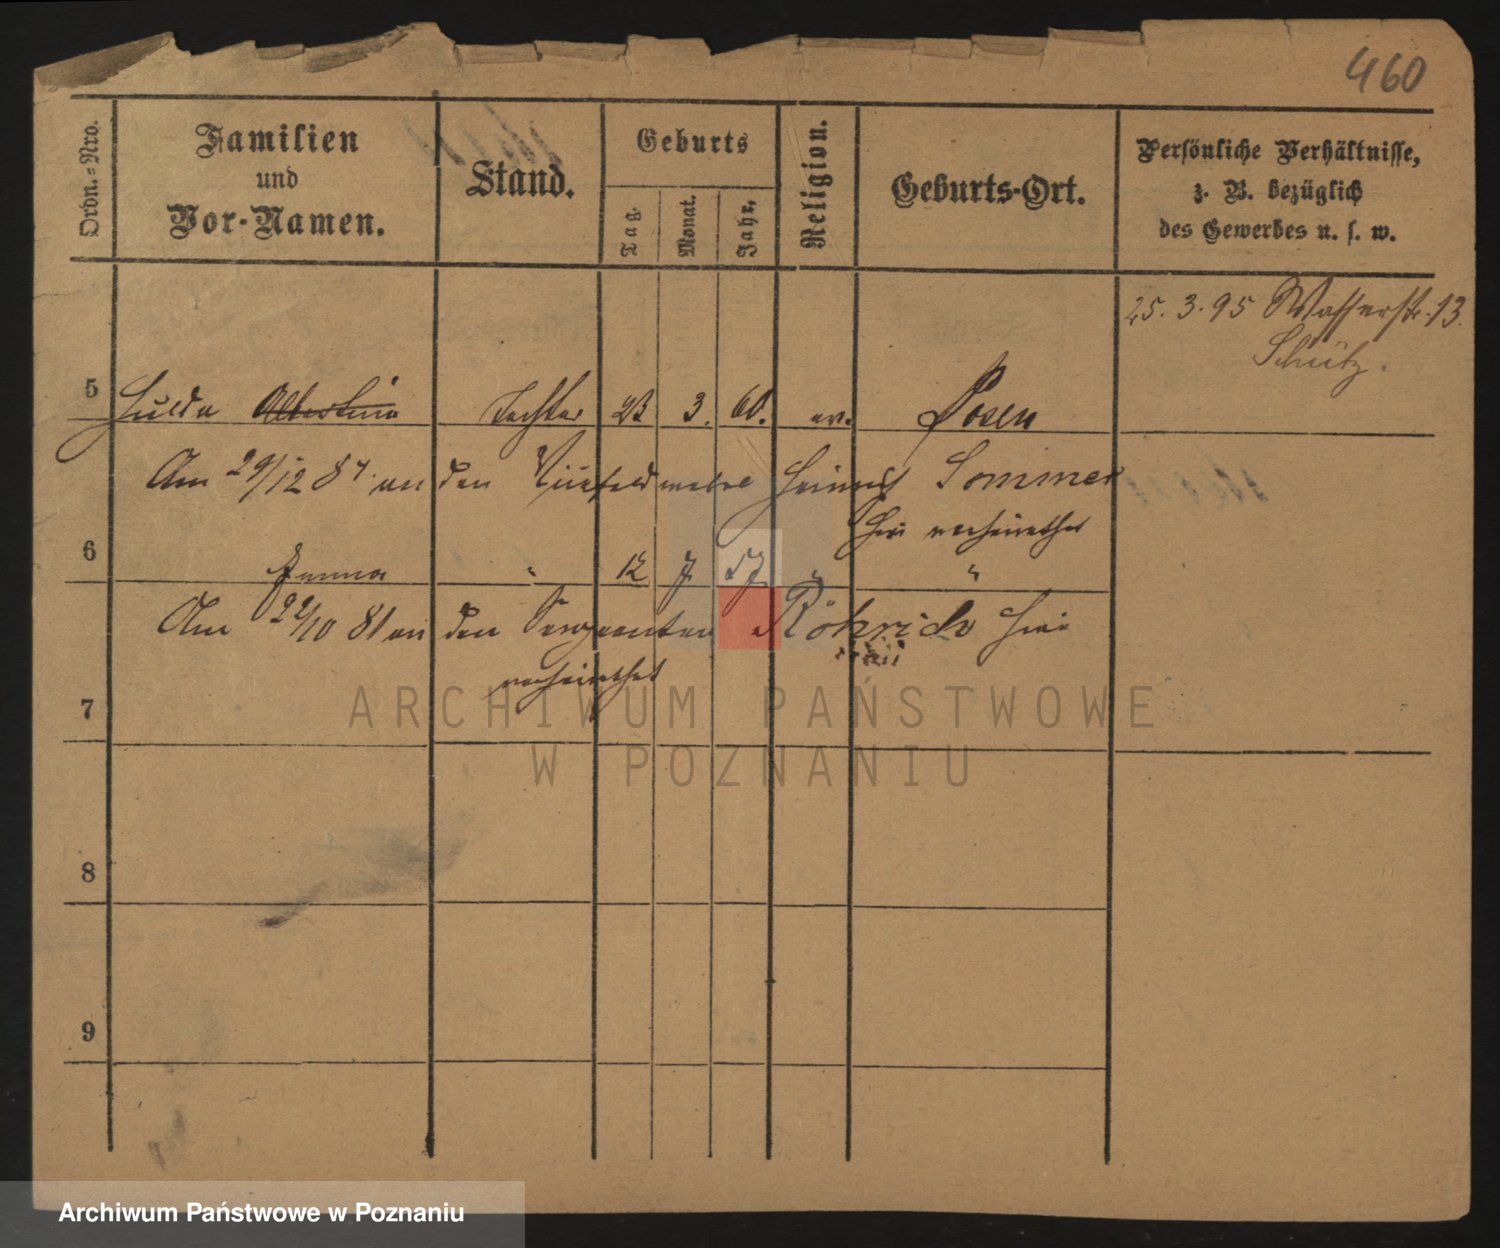 460
Ordn.-Nro.
Familien
und
Vor-Namen.
Stand.
Geburts
Tag.
Monat.
Jahr.
Religion.
Geburts-Ort.
Persönliche Verhältnisse,
z. B. bezüglich
des Gewerbes u. s. w.
25. 3. 95 Wasserstr. 13.
Schütz.
5 Hulda Albertine Tochter 23 3. 60. ev. Posen
Am 29/12 87 an den Vizefeldwebel Heinrich Sommer
hier verheirathet
6 Emma " 12 7. 57 " "
Am 22/10 81 an den Sergeanten Röhrich hier
verheirathet
7
8
9
ARCHIWUM PAŃSTWOWE
W POZNANIU
Archiwum Państwowe w Poznaniu